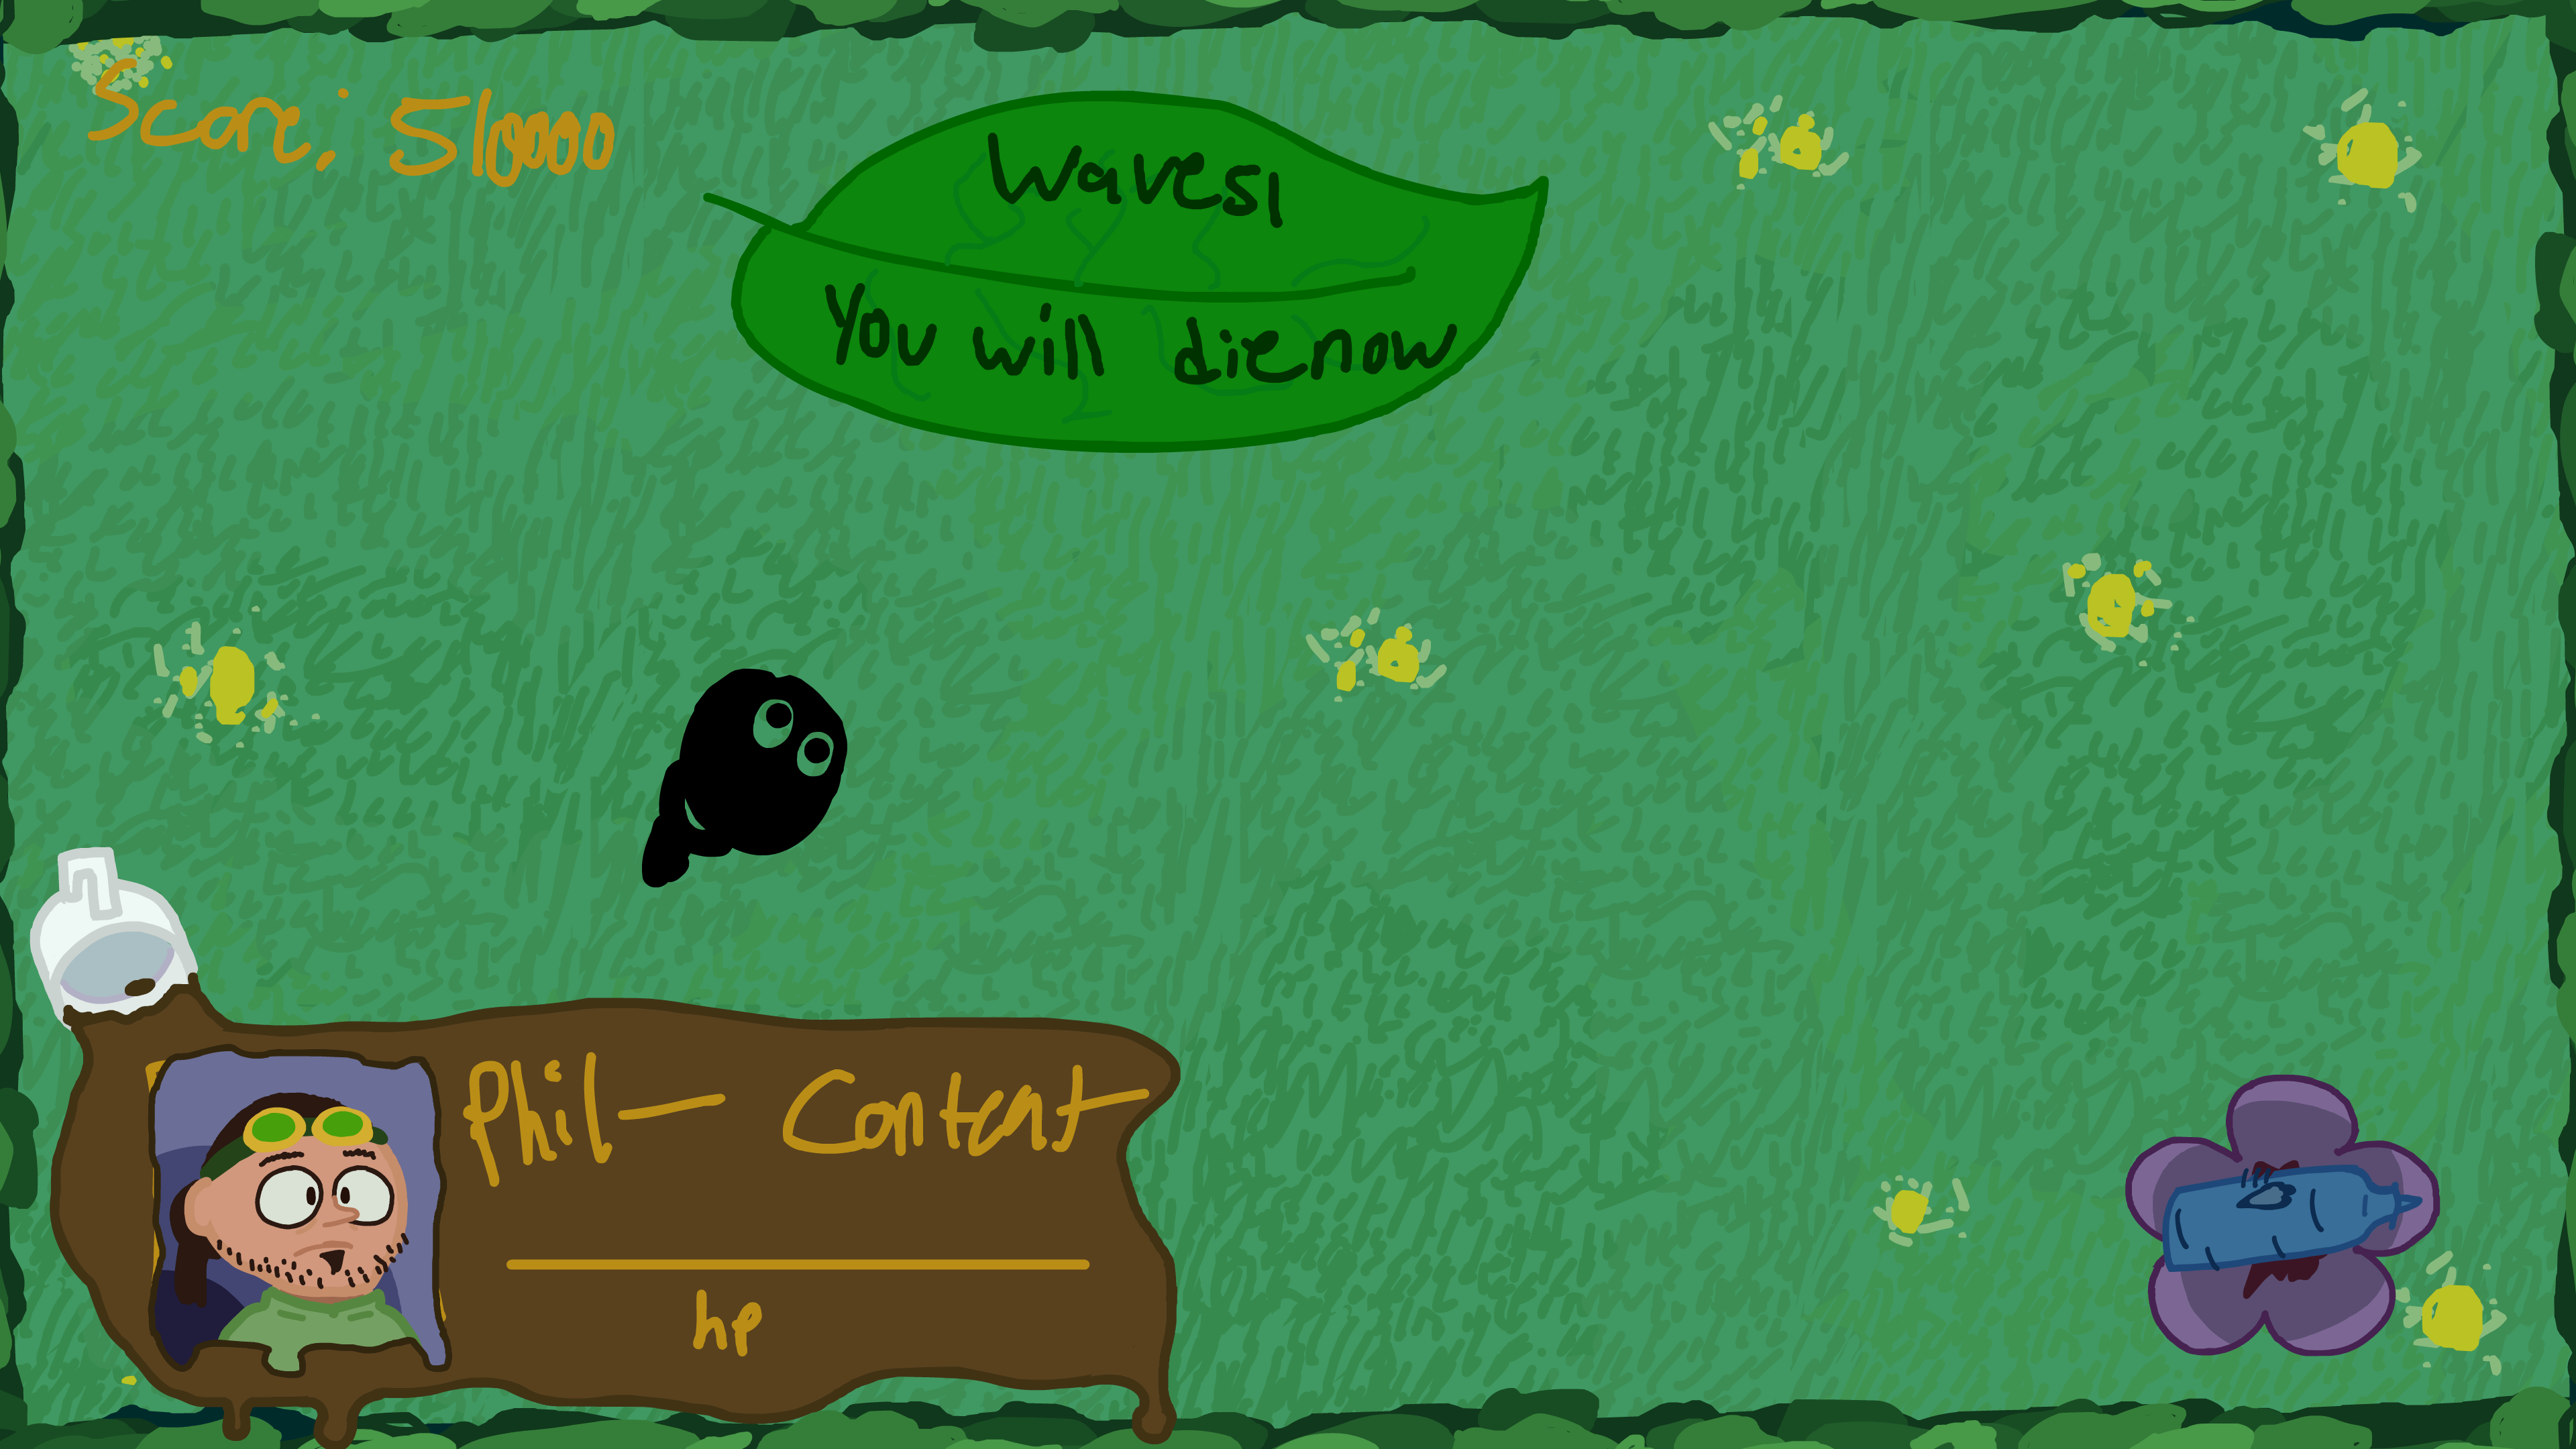 Score: 510000
Waves1
You will die now
Phil - Content
hp